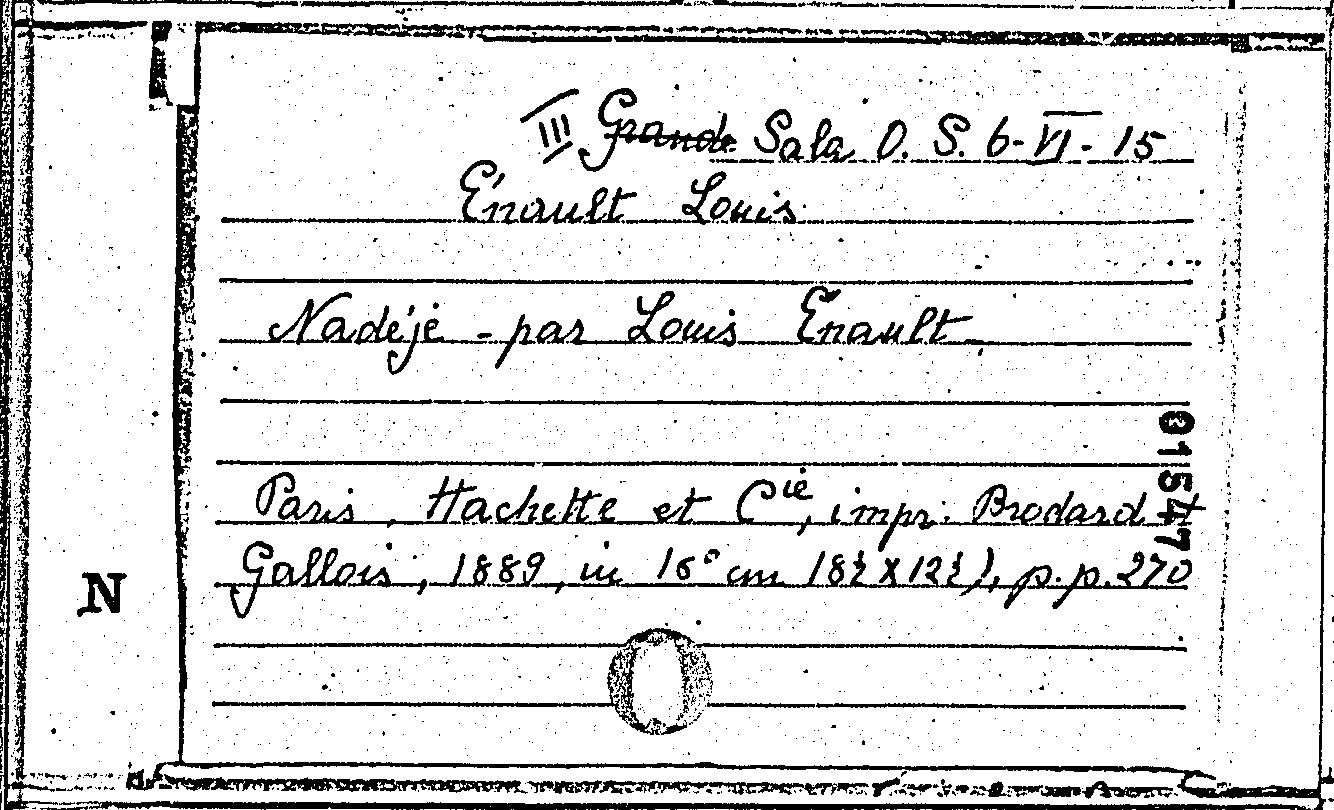 III Grande Sala O. S. 6-VI-15
Énault Louis
Nadéje - par Louis Enault
Paris, Hachette et Cie, impr. Brodard et
Gallois, 1889, in 16° cm 18½ X 12½), p.p. 270
01547
N